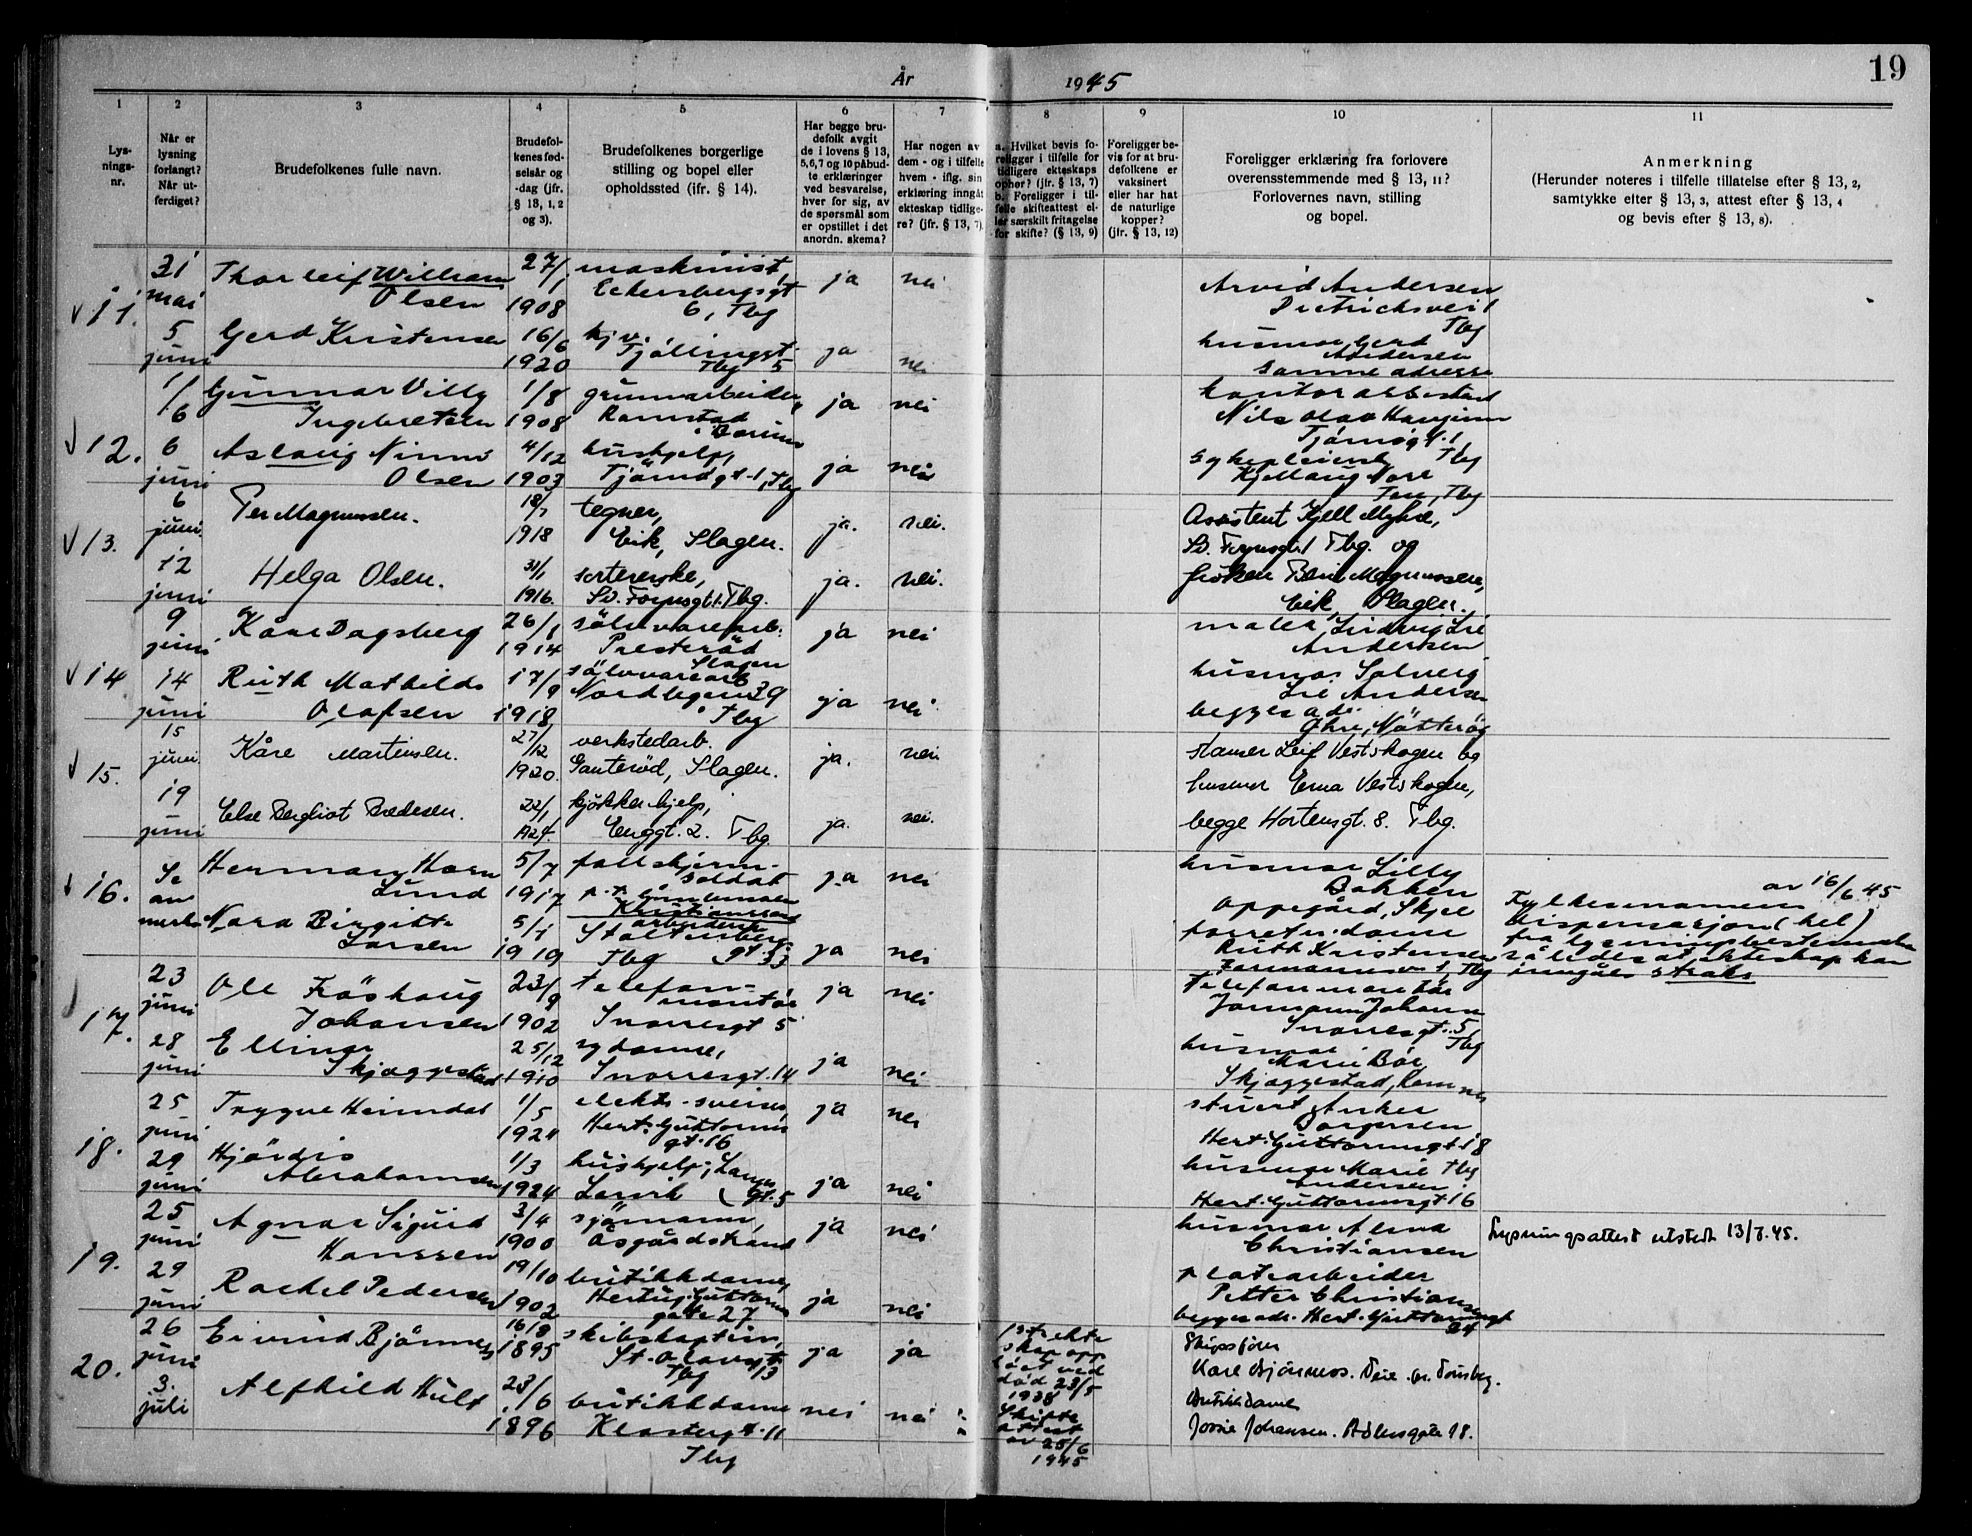 19
År 1945
1 2 3 4 5 6 7 8 9 10 11
Lys-
nings-
nr.
Når er
lysning
forlangt?
Når ut-
ferdiget?
Brudefolkenes fulle navn.
Brudefol-
kenes fød-
selsår og
-dag (jfr.
§ 13, 1, 2
og 3).
Brudefolkenes borgerlige
stilling og bopel eller
opholdssted (ifr. § 14).
Har begge bru-
defolk avgit
de i lovens § 13,
5, 6, 7 og 10 påbud-
te erklæringer
ved besvarelse,
hver for sig, av
de spørsmål som
er opstillet i det
anordn. skema?
Har nogen av
dem - og i tilfelle
hvem - iflg. sin
erklæring inngåt
ekteskap tidlige-
re? (jfr. § 13, 7)
a. Hvilket bevis fo-
religger i tilfelle for
tidligere ekteskaps
ophør? (jfr. § 13, 7)
b. Foreligger i til-
felle skifteattest el-
ler særskilt fritagelse
for skifte? (§ 13, 9)
Foreligger be-
vis for at bru-
defolkene er
vaksinert
eller har hat
de naturlige
kopper?
(jfr. § 13, 12)
Foreligger erklæring fra forlovere
overensstemmende med § 13, 11?
Forlovernes navn, stilling
og bopel.
Anmerkning
(Herunder noteres i tilfelle tillatelse efter § 13, 2,
samtykke efter § 13, 3, attest efter § 13, 4
og bevis efter § 13, 8).
11.
31
mai
Thorleif William
Olsen
27/1
1908
maskinist,
Eckersbergsgt
6, Tbg
ja nei
Arvid Andersen
Dietrichsvei 1
Tbg
5
juni
Gerd Kristensen
16/6
1920
hjv.
Tjøllinggt.
Tbg 5
ja nei
husmor Gerd
Andersen
samme adresse
12.
1/6
Gunnar Villy
Ingebretsen
1/8
1908
grunnarbeider,
Ramstad
Bærum
ja nei
Nils Olav
Tjømegt. 1
Tbg
6
juni
Aslaug
Olsen
4/12
1903
hushjelp,
Tjømegt. 1, Tbg
ja nei
Tbg
13.
6
juni
Per Magnussen.
1918
tegner,
Eik, Slagen.
ja. nei.
Assistent Kjell Myhre,
Tbg. og
12
juni
Helga Olsen.
31/1
1916.
sortererske,
Tbg.
ja. nei.
frøken Magnussen,
Eik, Slagen.
14
9
juni
Kåre Dagsberg
26/1
1914
sølvvarearb.
Presterød
Slagen
ja nei
maler Ludvig
Andersen
14
juni
Ruth Mathilde
Olafsen
17/9
1918
sølvvarearb
Nordbyen 39
Tbg
ja nei
husmor Solveig
Andersen
begges adr.
Øhre, Nøtterøy
15.
15
juni
Kåre Martinsen.
27/12
1920.
verkstedarb.
Gauterød, Slagen.
ja. nei
stanser Leif Vestskogen og
19
juni
Else Bergliot Bredesen.
22/1
1924.
kjøkkenhjelp,
Enggt. 2. Tbg.
ja. nei.
husmor Erna Vestskogen,
begge Hortensgt. 8. Tbg.
16.
Se
an
merk
Herman Horn
Lund
5/7
1917
fallskjerm-
soldat
Kristiansand
ja nei
husmor Lilly
Bakken
Oppegård, Skje
av 16/6 45
Fylkesmannen
dispensasjon (hel)
fra lysningsbestemmelsen
således at ekteskap kan
inngåes straks
Nora Birgitte
Larsen
5/1
1919
arbeiderske
Stoltenberg-
Tbg gt. 33
ja nei
Ruth Kristensen
Tbg
17.
23
juni
Ole Frøshaug
Johansen
23/9
1902
telefon-
montør
Snorresgt 5
ja nei
telefonmontør
Jormann Johansen
Snorresgt. 5,
Tbg
28
juni
Ellinor
Skjæggestad
25/12
1910
sydame,
Snorresgt. 14
ja nei
husmor
Marie Bøe
Skjæggestad, Ramnes
18.
25
juni
Trygve Heimdal
1/5
1924
elektr.-sveiser,
Hert. Guttorms
gt. 16
ja nei
stuert Anker
Borgersen
Hert. Guttormsgt 18
29
juni
Hjørdis
Abrahamsen
1/3
1924
hushjelp, Langes
Larvik gt. 5
ja nei
husmor Marie Tbg
Andersen
Hert. Guttormsgt 16
19.
25
juni
Agnar Sigurd
Hanssen
3/4
1900
sjømann,
Åsgårdstrand
ja nei
husmor Alma
Christiansen
Lysningsattest utstedt 13/7.45.
29
juni
Rachel Pedersen
19/10
1902
butikkdame,
Hertug Guttorms
gate 27
ja nei
platearbeider
Petter Christiansen
begges adr. Hert. Guttormsgt
20.
26
juni
Eivind Bjønnes
16/8
1895
skibskaptein,
St. Olavsgt
Tbg 13
ja ja
ekte
skap opp
løst ved
død 23/5
1938
Skifte
attest
av 25/6
1945
Skipsfører
Kåre Bjønnes. Teie pr. Tønsberg.
3.
juli
Alfhild Hult
23/6
1896
butikkdame
Klostergt. 11
Tbg
nei nei
Butikkdame
Jossie Johansen. Adlersgate 18.